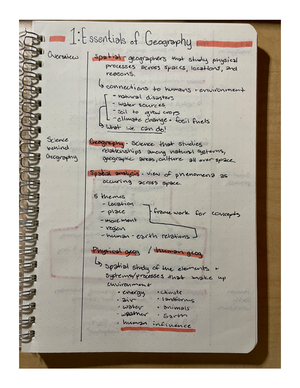 1: Essentials of Geography
Overview
Spatial - geographers that study physical
processes across spaces, locations, and
regions.
↳ connections to humans + environment
- natural disasters
- water sources
- soil to grow crops
- climate change + fossil fuels
↳ what we can do!
Science
behind
Geography
Geography - Science that studies
relationships among natural systems,
geographic areas, culture all over space.
Spatial analysis - view of phenomena as
occuring across space
5 themes
- location
- place
- movement
- region
- human-earth relations
frame work for concepts
Physical geog / human geog
↳ Spatial study of the elements +
systems/processes that make up
environment
• energy • climate
• air • landforms
• water • animals
• weather • Earth
• human influence